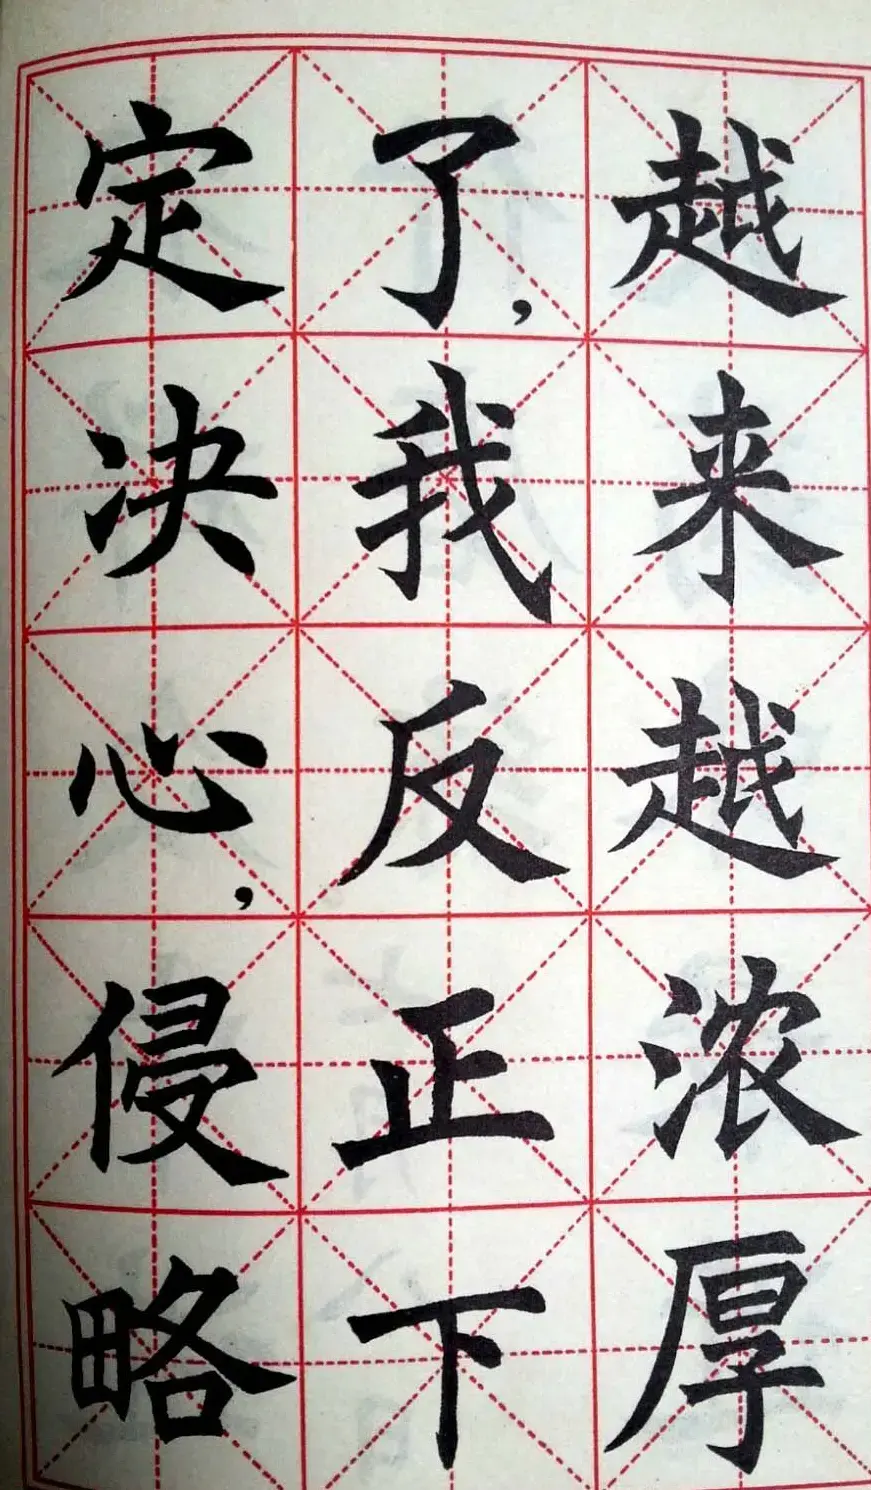 越来越浓厚
了，我反正下
定决心，侵略